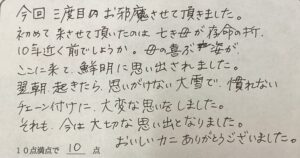 今回三度目のお邪魔させて頂きました。
初めて来させて頂いたのは亡き母が存命の折、
10年近く前でしょうか。母の喜ぶ姿が、
ここに来て、鮮明に思い出されました。
翌朝、起きたら、思いがけない大雪で、慣れない
チェーン付けに、大変な思いをしました。
それも、今は大切な思い出となりました。
おいしいカニありがとうございました。
10点満点で 10 点